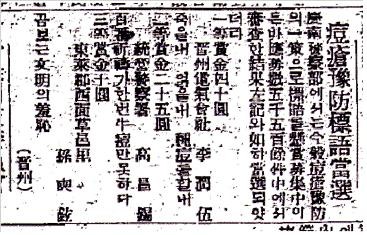 痘瘡豫防標語當選
慶南警察部에서는 今般痘瘡豫防
의 一策으로 標語를 懸賞募集中이
든바 應募數五千五百餘件中에서
審査한 結果左記와 如히 當選되얏
더라
一等賞金四十圓
晋州電氣會社 李潤伍
죽을내 얽을내 種痘를할내
二等賞金二十五圓
統營警察署 高昌錫
百番祈禱가 한번 牛痘만 못하다
三等賞金十圓
東萊郡西面草邑里
孫
곰보는 文明의 羞恥
(晋州)